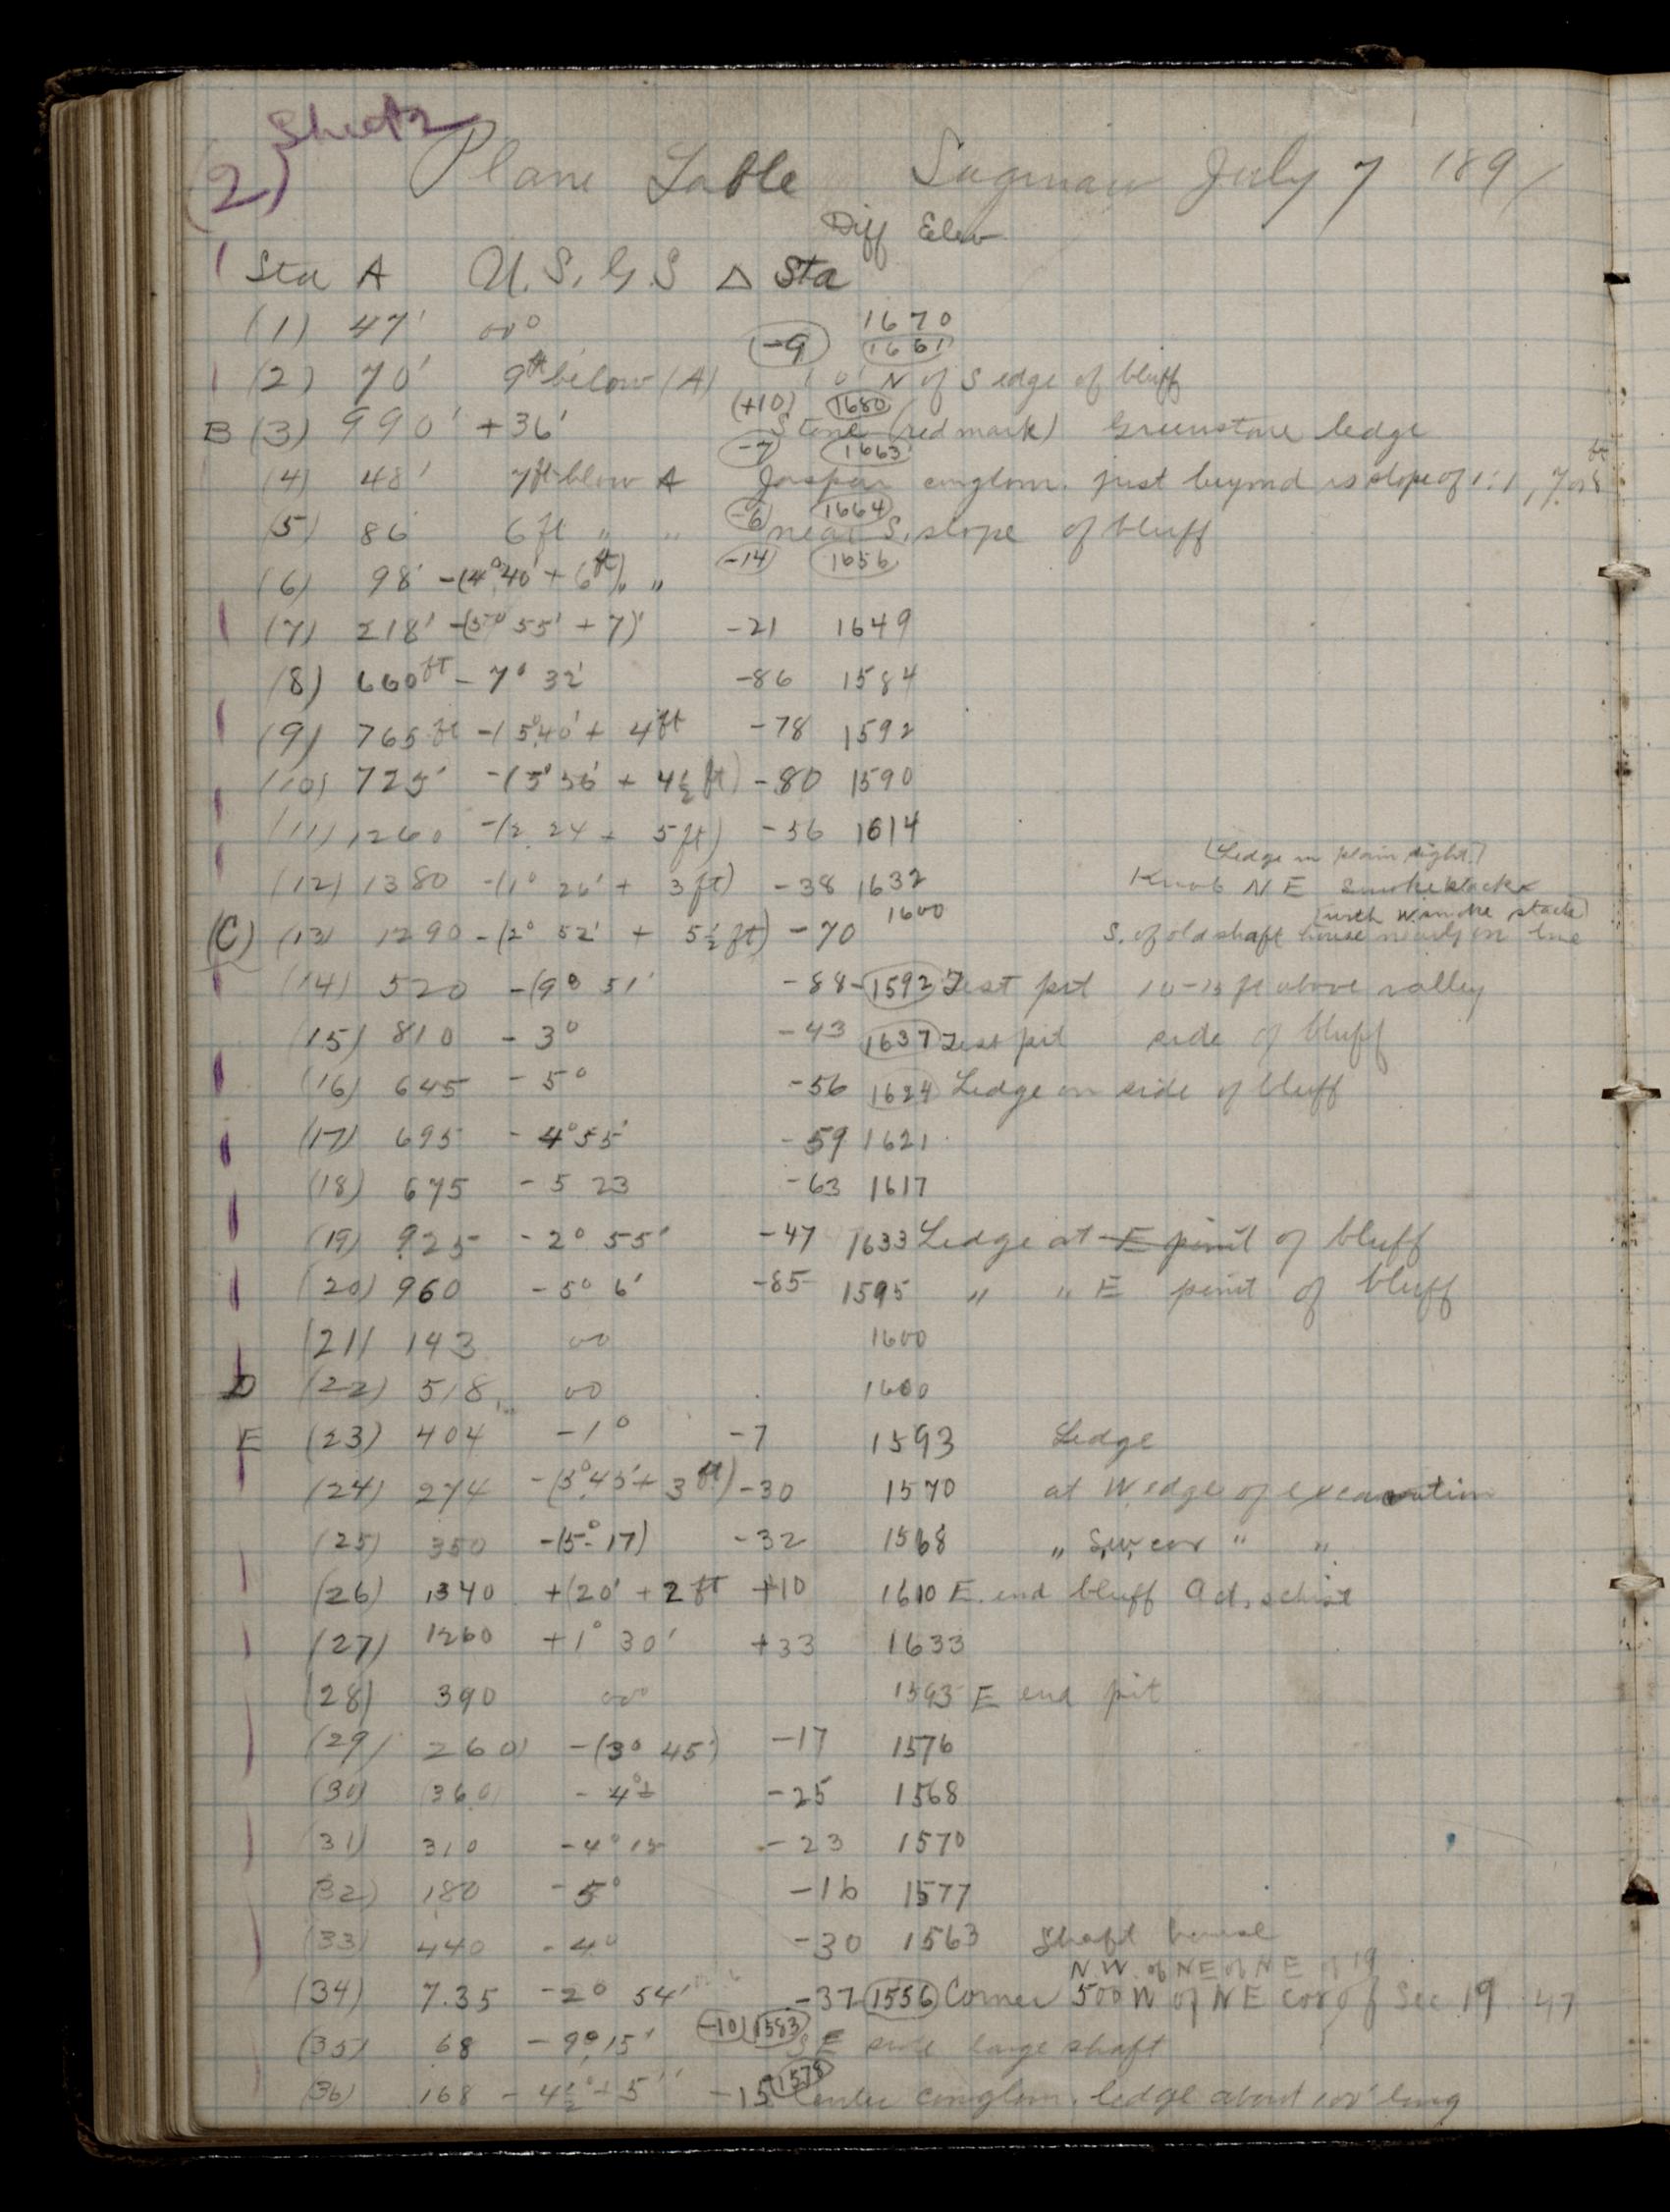 Sheet 2
(2) Plane Table Saginaw July 7 1891
Diff Elev
Sta A U.S.G.S △ Sta
(1) 47' 00° 1670
-9 1661
(2) 70' 9ft below (A) 10' N of S edge of bluff
(+10) 1680
B (3) 990' +36' Stone (red mark) Greenstone ledge
-7 1663
(4) 48' 7ft blow A Jaspar conglom. just beyond is slope of 1:1, 7 or 8 ft
-6 1664
(5) 86 6 ft " " near S. slope of bluff
(6) 98' -(4° 40' + 6ft) " " -14 1656
(7) 218' -(5° 55' + 7)' -21 1649
(8) 660ft - 7° 32' -86 1584
(9) 765 ft -(5° 40' + 4ft -78 1592
(10) 725' -(5° 56' + 4½ ft) -80 1590
(11) 1260 -(2 24 + 5 ft) -56 1614
(Ledge in plain sight)
(12) 1380 -(1° 26' + 3 ft) -38 1632 Knob N E Smokestack
(C) (13) 1290 -(2° 52' + 5½ ft) -70 1600 S. of old shaft house nearly in line (with smoke stack)
(14) 520 -(9° 51' -88 1592 Test pit 10-15 ft above valley
(15) 810 - 3° -43 1637 Test pit side of bluff
(16) 645 - 5° -56 1624 Ledge on side of bluff
(17) 695 - 4° 55' -59 1621
(18) 675 - 5 23 -63 1617
(19) 925 - 2° 55' -47 1633 Ledge at E point of bluff
(20) 960 - 5° 6' -85 1595 " " E point of bluff
(21) 143 00 1600
D (22) 518 00 1600
E (23) 404 -1° -7 1593 Ledge
(24) 274 -(5° 45' + 3 ft) -30 1570 at W edge of excavation
(25) 350 -(5° 17) -32 1568 " S.W. cor " "
(26) 1340 +(20' + 2 ft +10 1610 E. end bluff Act. schist
(27) 1260 +1° 30' +33 1633
(28) 390 00° 1593 E end pit
(29) 260 -(3° 45') -17 1576
(30) 360 - 4°± -25 1568
(31) 310 -4° 15 -23 1570
(32) 180 -5° -16 1577
(33) 440 -4° -30 1563 Shaft house
N.W. of NE of NE of 19
(34) 7.35 -2° 54' -37 1556 Corner 500 W of NE cor of Sec 19 47
(35) 68 - 9° 15' -10 1583 SE side large shaft
(36) 168 - 4½° + 5' -15 1578 Center conglom. ledge about 100' long